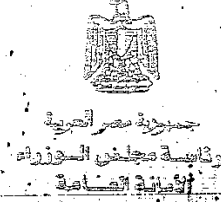 جمهورية مصر العربية
رئاسة مجلس الوزراء
الأمانة العامة